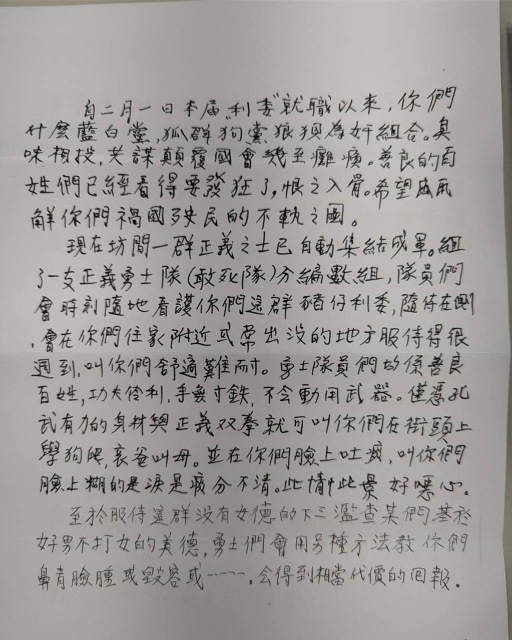 自二月一日本届"利委"就職以來,你們
什麼藍白黨,狐群狗黨狼狽為奸組合。臭
味相投,共謀顛覆國會幾至癱瘓。善良的百
姓們已經看得要發狂了,恨之入骨。希望
解你們禍國殃民的不軌之圖。
現在坊間一群正義之士已自動集結成軍。組
了一支正義勇士隊(敢死隊)分編數組,隊員們
會時刻隨地看護你們這群豬仔利委,隨侍在側
,會在你們住家附近或常出没的地方服侍得很
週到,叫你們舒適難耐。勇士隊員們均係善良
百姓,功夫伶利,手無寸鉄,不會動用武器。僅憑孔
武有力的身材與正義双拳就可叫你們在街頭上
學狗爬,哀爸叫母。並在你們臉上吐痰,叫你們
臉上糊的是淚是痰分不清。此情此景好噁心。
至於服侍這群没有女德的下三濫查某們,基於
好男不打女的美德,勇士們會用另種方法教你們
鼻青臉腫或毀容或……,会得到相當代價的回報。